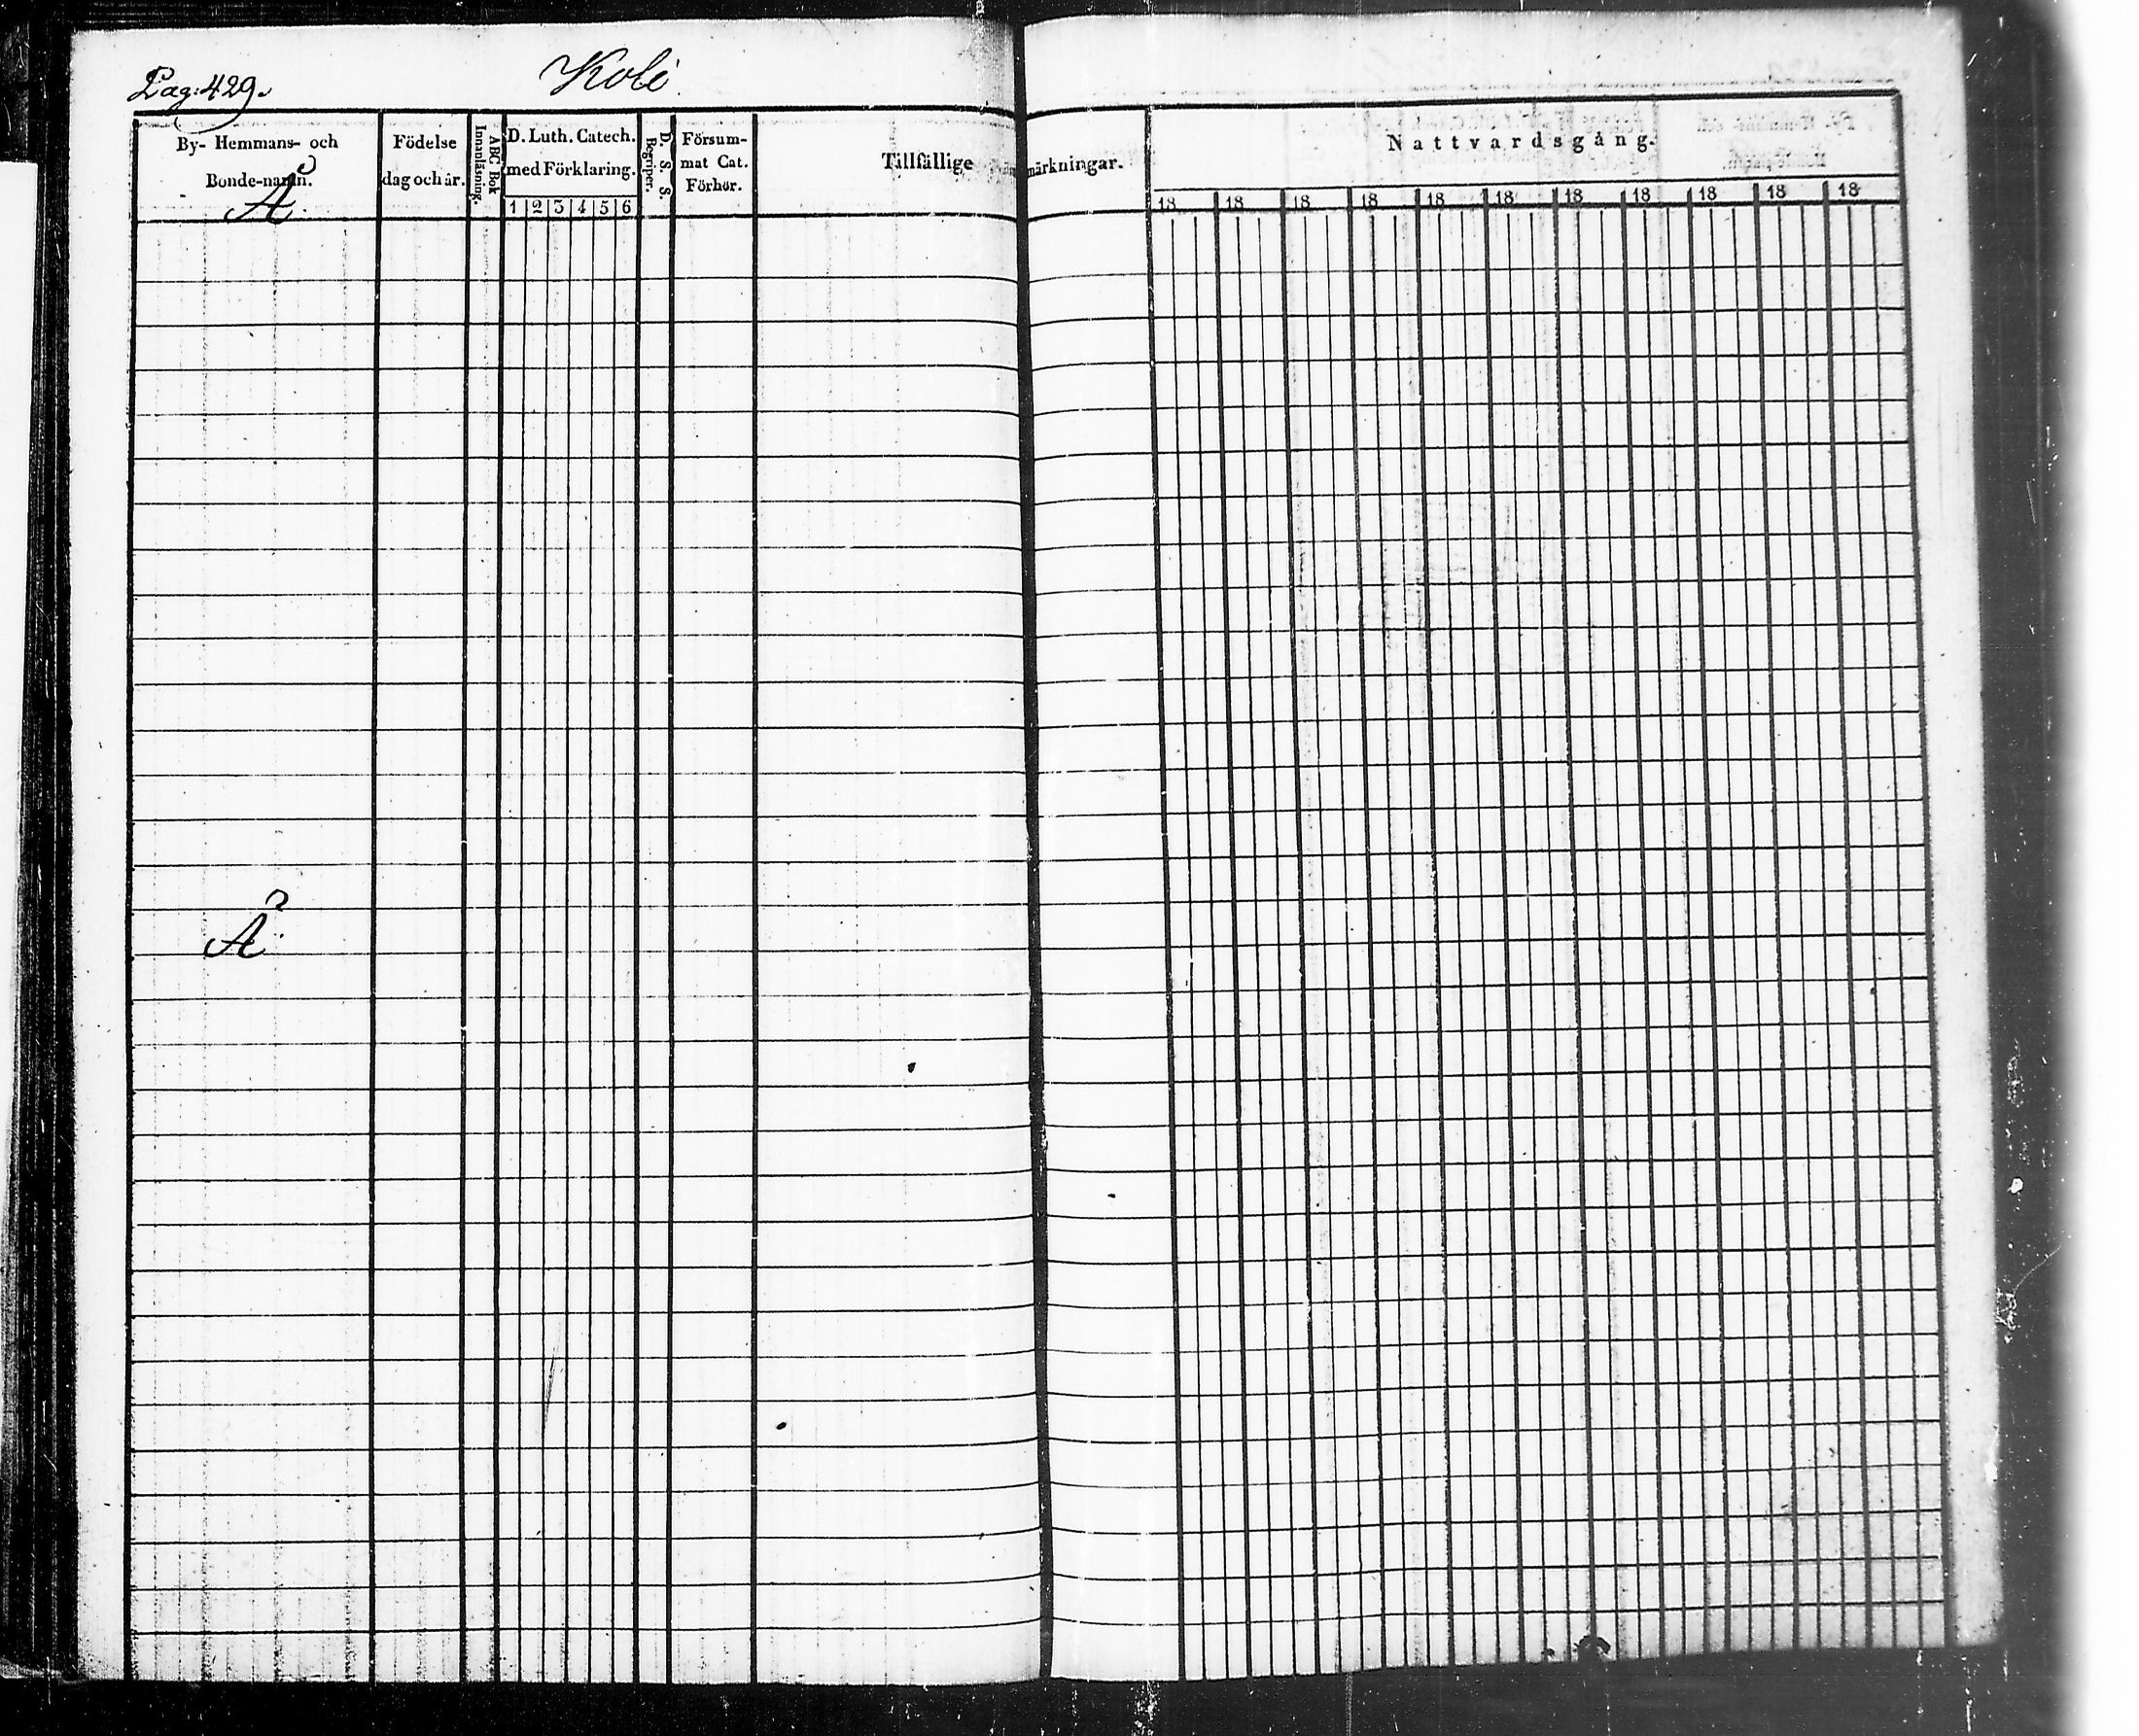 Pag: 429.
Kolé.
By- Hemmans- och
Bonde-namn.
Födelse
dag och år.
ABC Bok
Innanläsning.
D. Luth. Catech.
med Förklaring.
1 2 3 4 5 6
D. S. S.
Begriper.
Försum-
mat Cat.
Förhör.
Tillfällige märkningar.
Nattvardsgång.
18 18 18 18 18 18 18 18 18 18 18
Å.
Å.